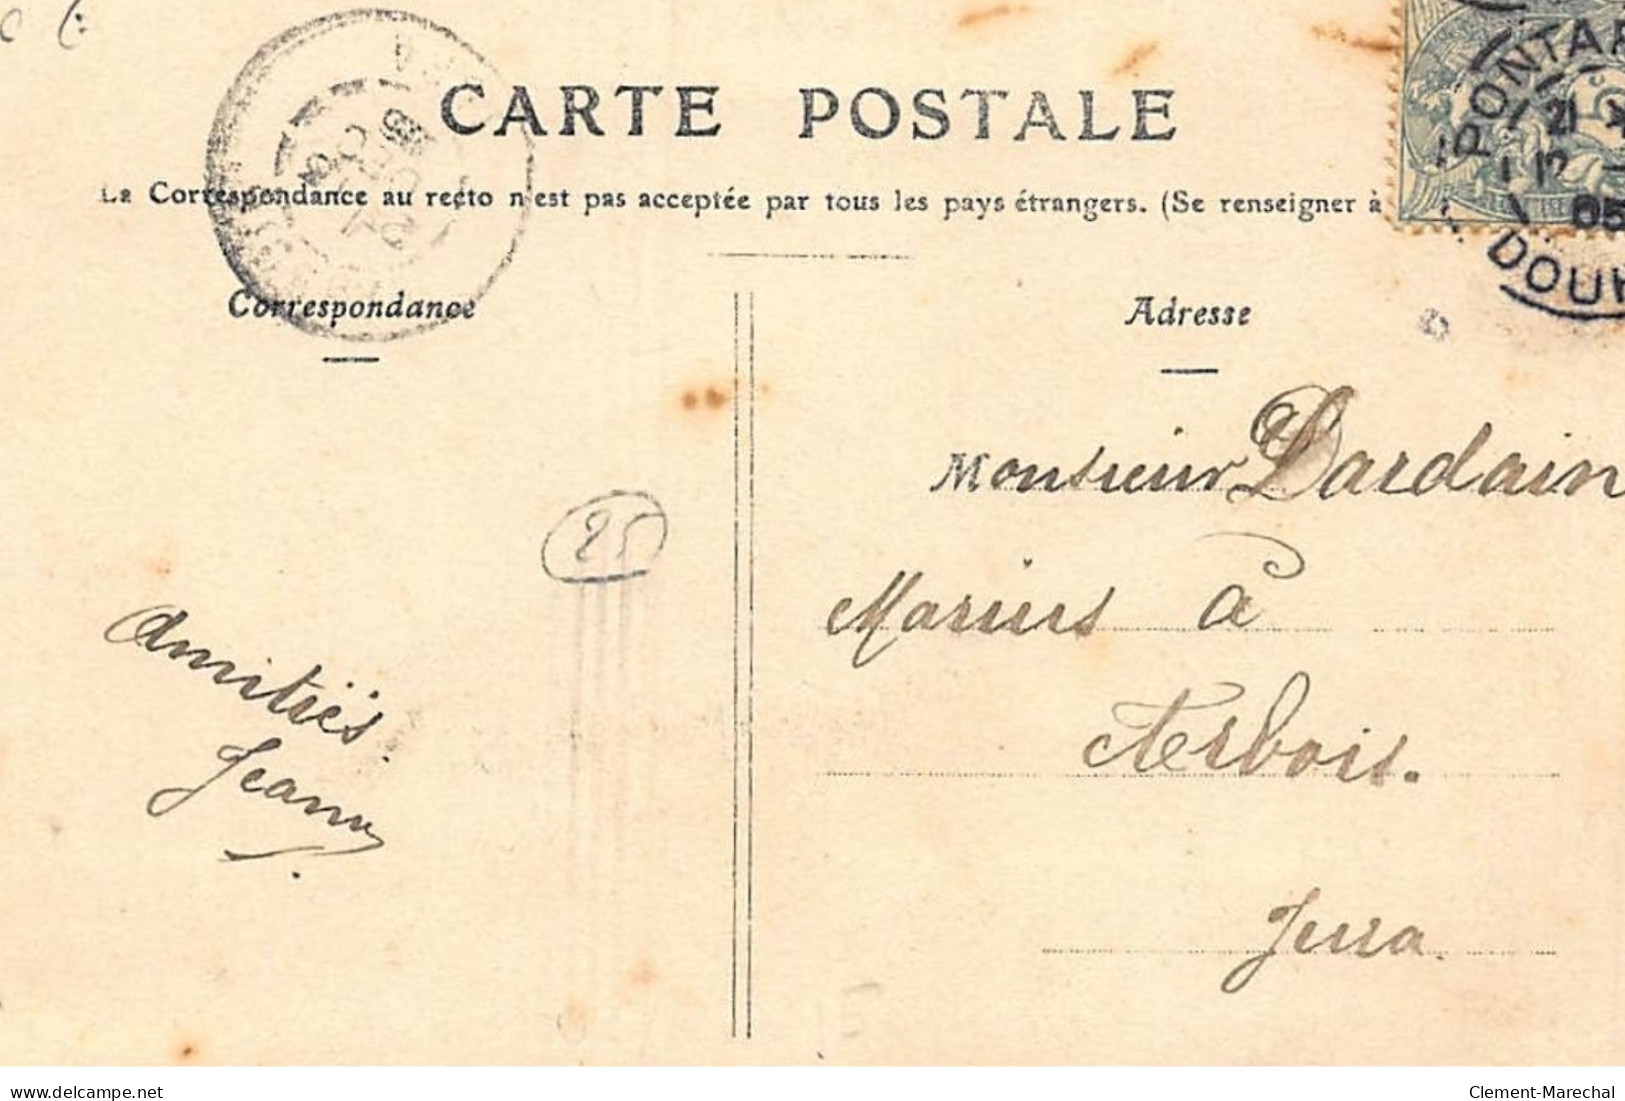 CARTE POSTALE
La Correspondance au recto n'est pas acceptée par tous les pays étrangers. (Se renseigner à
Correspondance
Adresse
PONTAR
21
13
05
DOU
Monsieur Dardain
Marius à
Jura
25
Amitiés
delcampe.net
Clement-Marechal